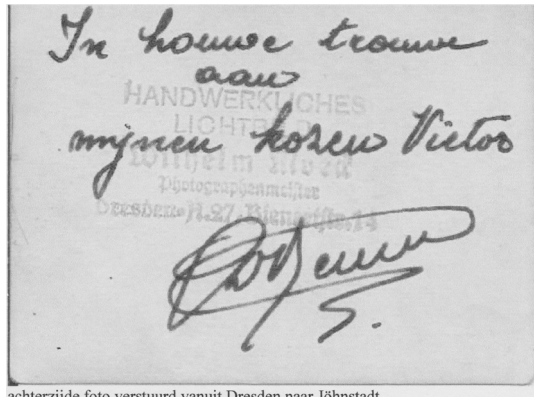 In houwe trouwe
aan
mijnen kozen Victor
HANDWERKLICHES
LICHTBILD
Wilhelm
Photographenmeister
Dresden-N.27. Bienertstr.14
achterzijde foto verstuurd vanuit Dresden naar Jöhnstadt